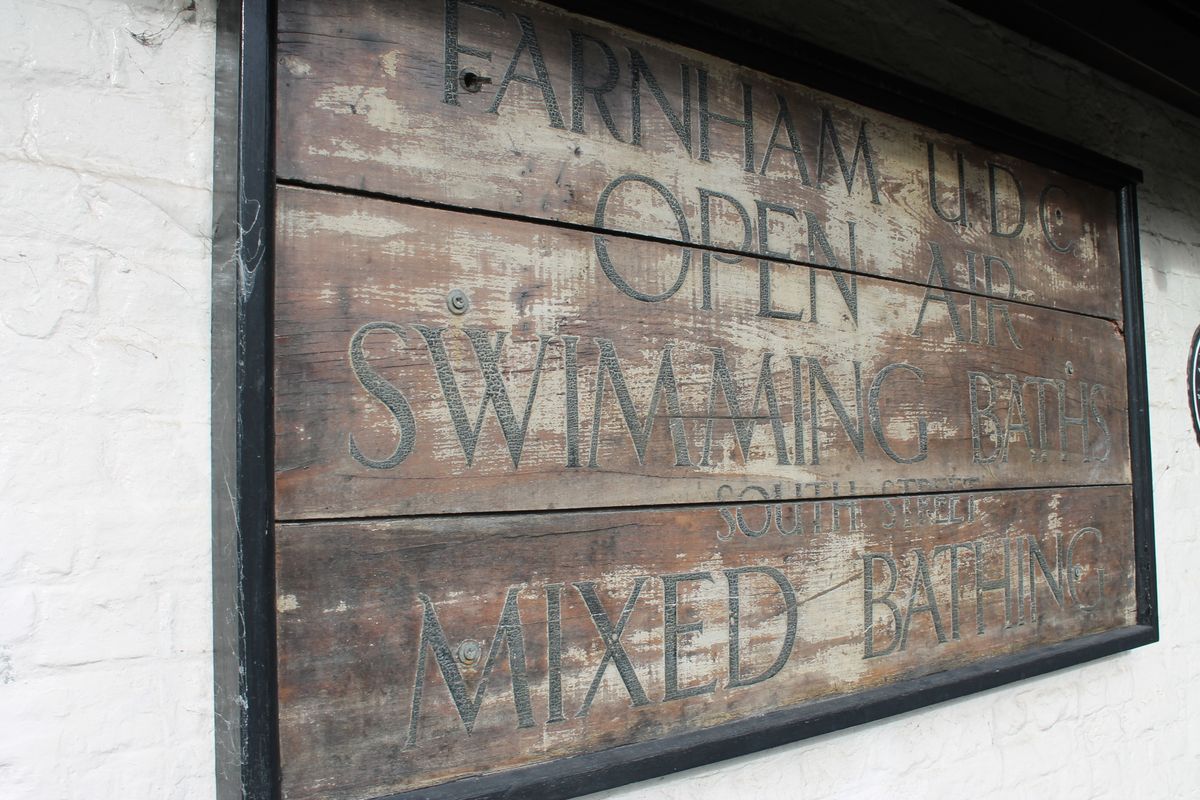 FARNHAM U.D.C
OPEN AIR
SWIMMING BATHS
SOUTH STREET
MIXED BATHING